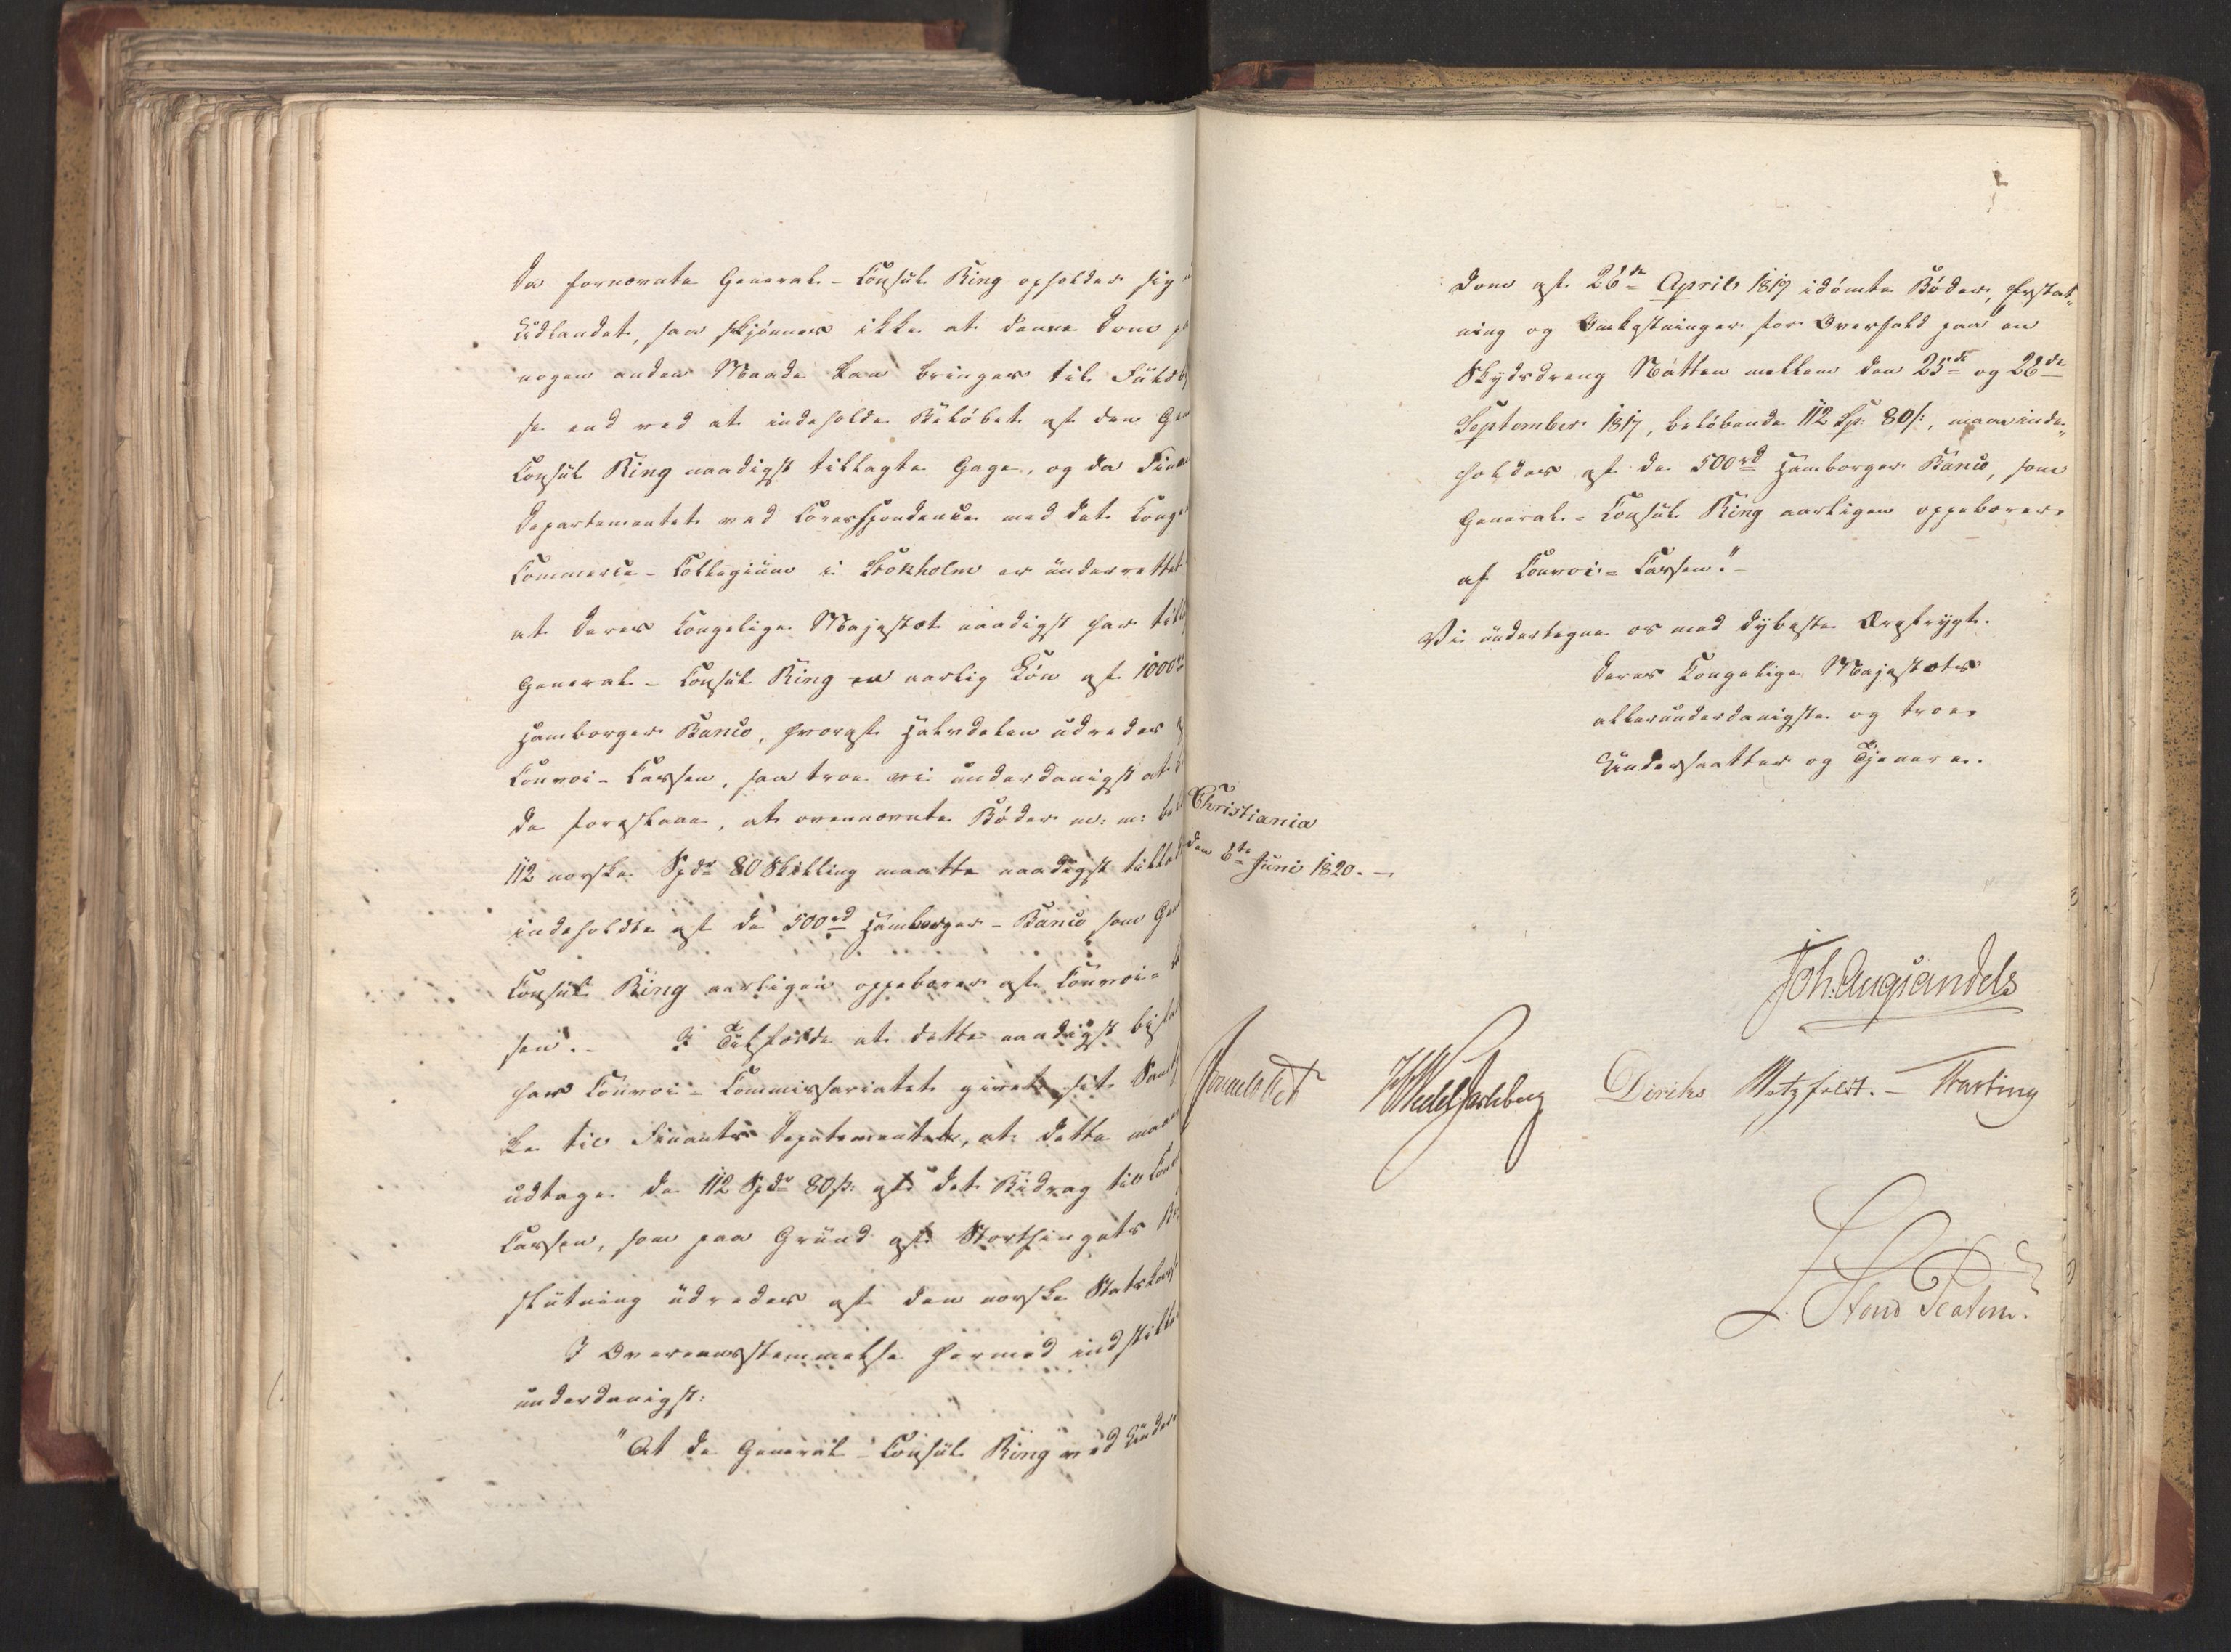 Da fornævnte General-Consul Ring opholder sig
Udlandet, saa skjønnes ikke at denne Dom
nogen anden Maade kan bringes til Fuldb
se end ved at indeholde Beløbet af den Ge
Consul Ring naadigst tillagte Gage, og da Fina
Departementet ved Correspondence med det Konge
Commerce-Collegium i Stokholm er underrettet
at Deres Kongelige Majestæt naadigst har till
General-Consul Ring en aarlig Løn af 1000
Hamborger Banco, hvoraf Halvdelen udredes
Convoi-Cassen, saa troe vi underdanigst at
de foreslaae, at ovennævnte Bøder m: m: bel
112 norske Spdr 80 Skilling maatte naadigst tillad
indeholdte af de 500rd Hamborger-Banco, som Gen
Consul Ring aarligen oppebærer af Convoi-
sen. - I Tilfælde at dette naadigst bifal
har Convoi-Commissariatet givet sit Samty
ke til Finants Departementet, at dette maa
udtage de 112 Spdr 80 s: af det Bidrag til Con
Cassen, som paa Grund af Storthingets Be
slutning udredes af den norske Statskas
I Overeensstemmelse hermed indstilles
underdanigst:
"At de General-Consul Ring ved Under
Dom af 26de April 1819 idømte Bøder, Erstat„
ning og Omkostninger for Overfald paa en
Skydsdreng Natten mellem den 25de og 26de
September 1817, beløbende 112 Sp: 80 s:, maa inde„
holdes af de 500rd Hamborger Banco, som
General-Consul Ring aarligen oppebærer
af Convoi-Cassen." -
Vi undertegne os med dybeste Ærefrygt.
Deres Kongelige Majestæts
allerunderdanigste og troe
Undersaatter og Tjenere.
Christiania
den 6te Juni 1820. -
Joh: Aug: Sandels
Sommerhielm HWedel Jarlsberg Diriks Motzfeldt. - Fasting
L. Stoud Platou.